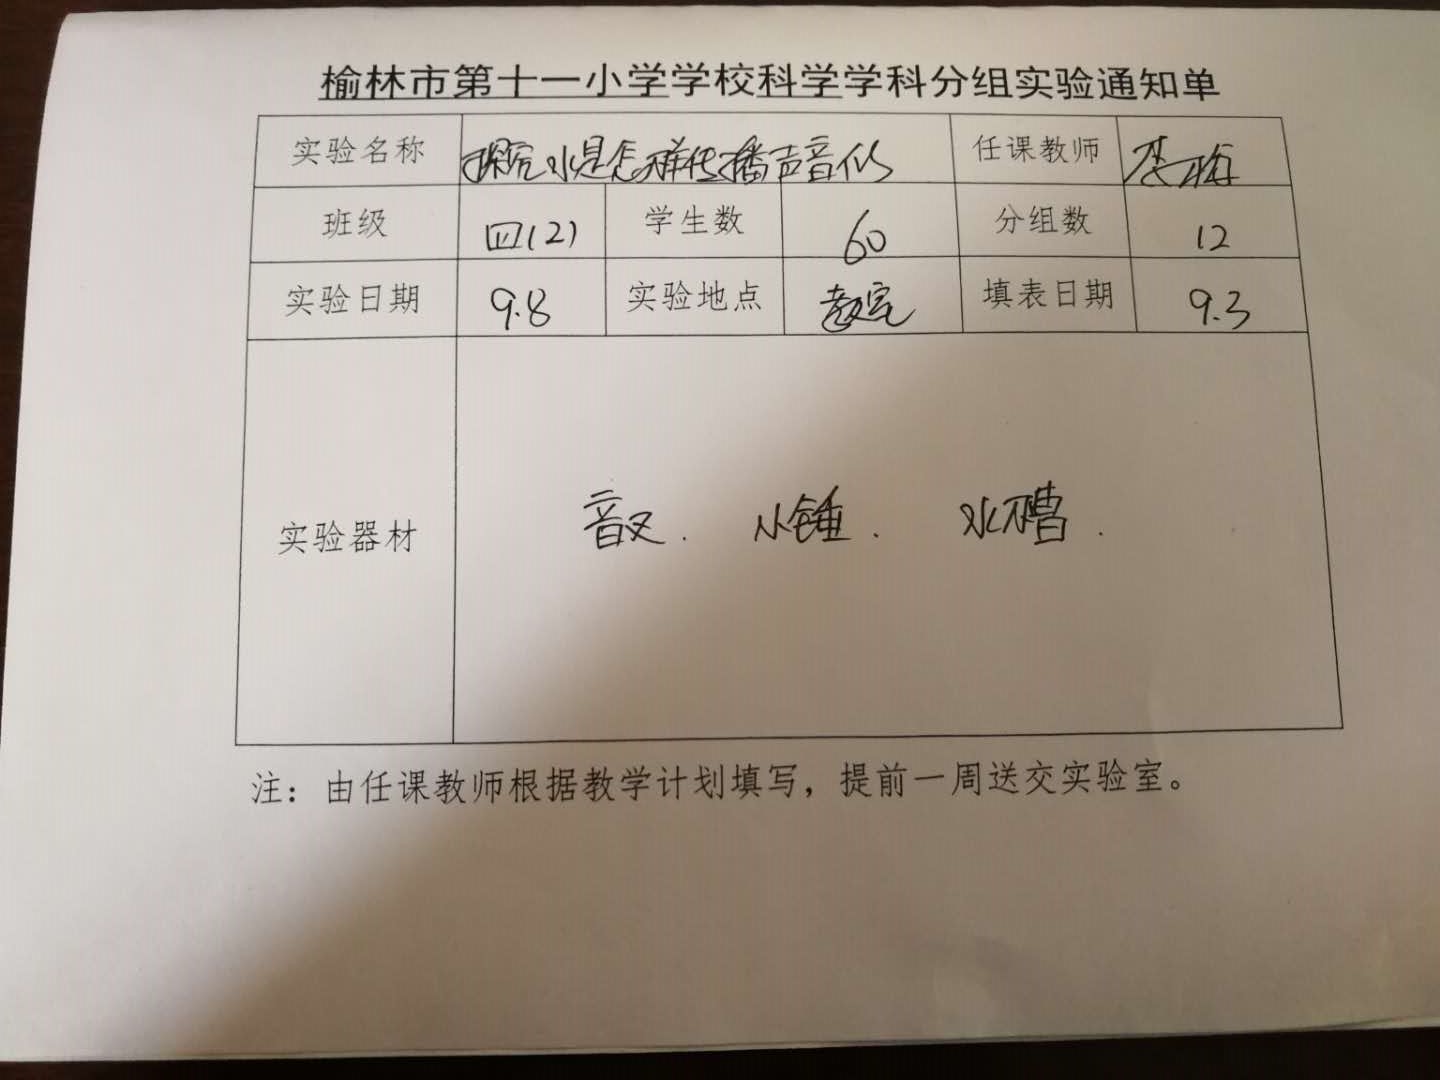 榆林市第十一小学学校科学学科分组实验通知单
实验名称 探究水是怎样传播声音的 任课教师 李梅
班级 四(2) 学生数 60 分组数 12
实验日期 9.8 实验地点 教室 填表日期 9.3
实验器材 音叉. 小锤. 水槽.
注：由任课教师根据教学计划填写，提前一周送交实验室。